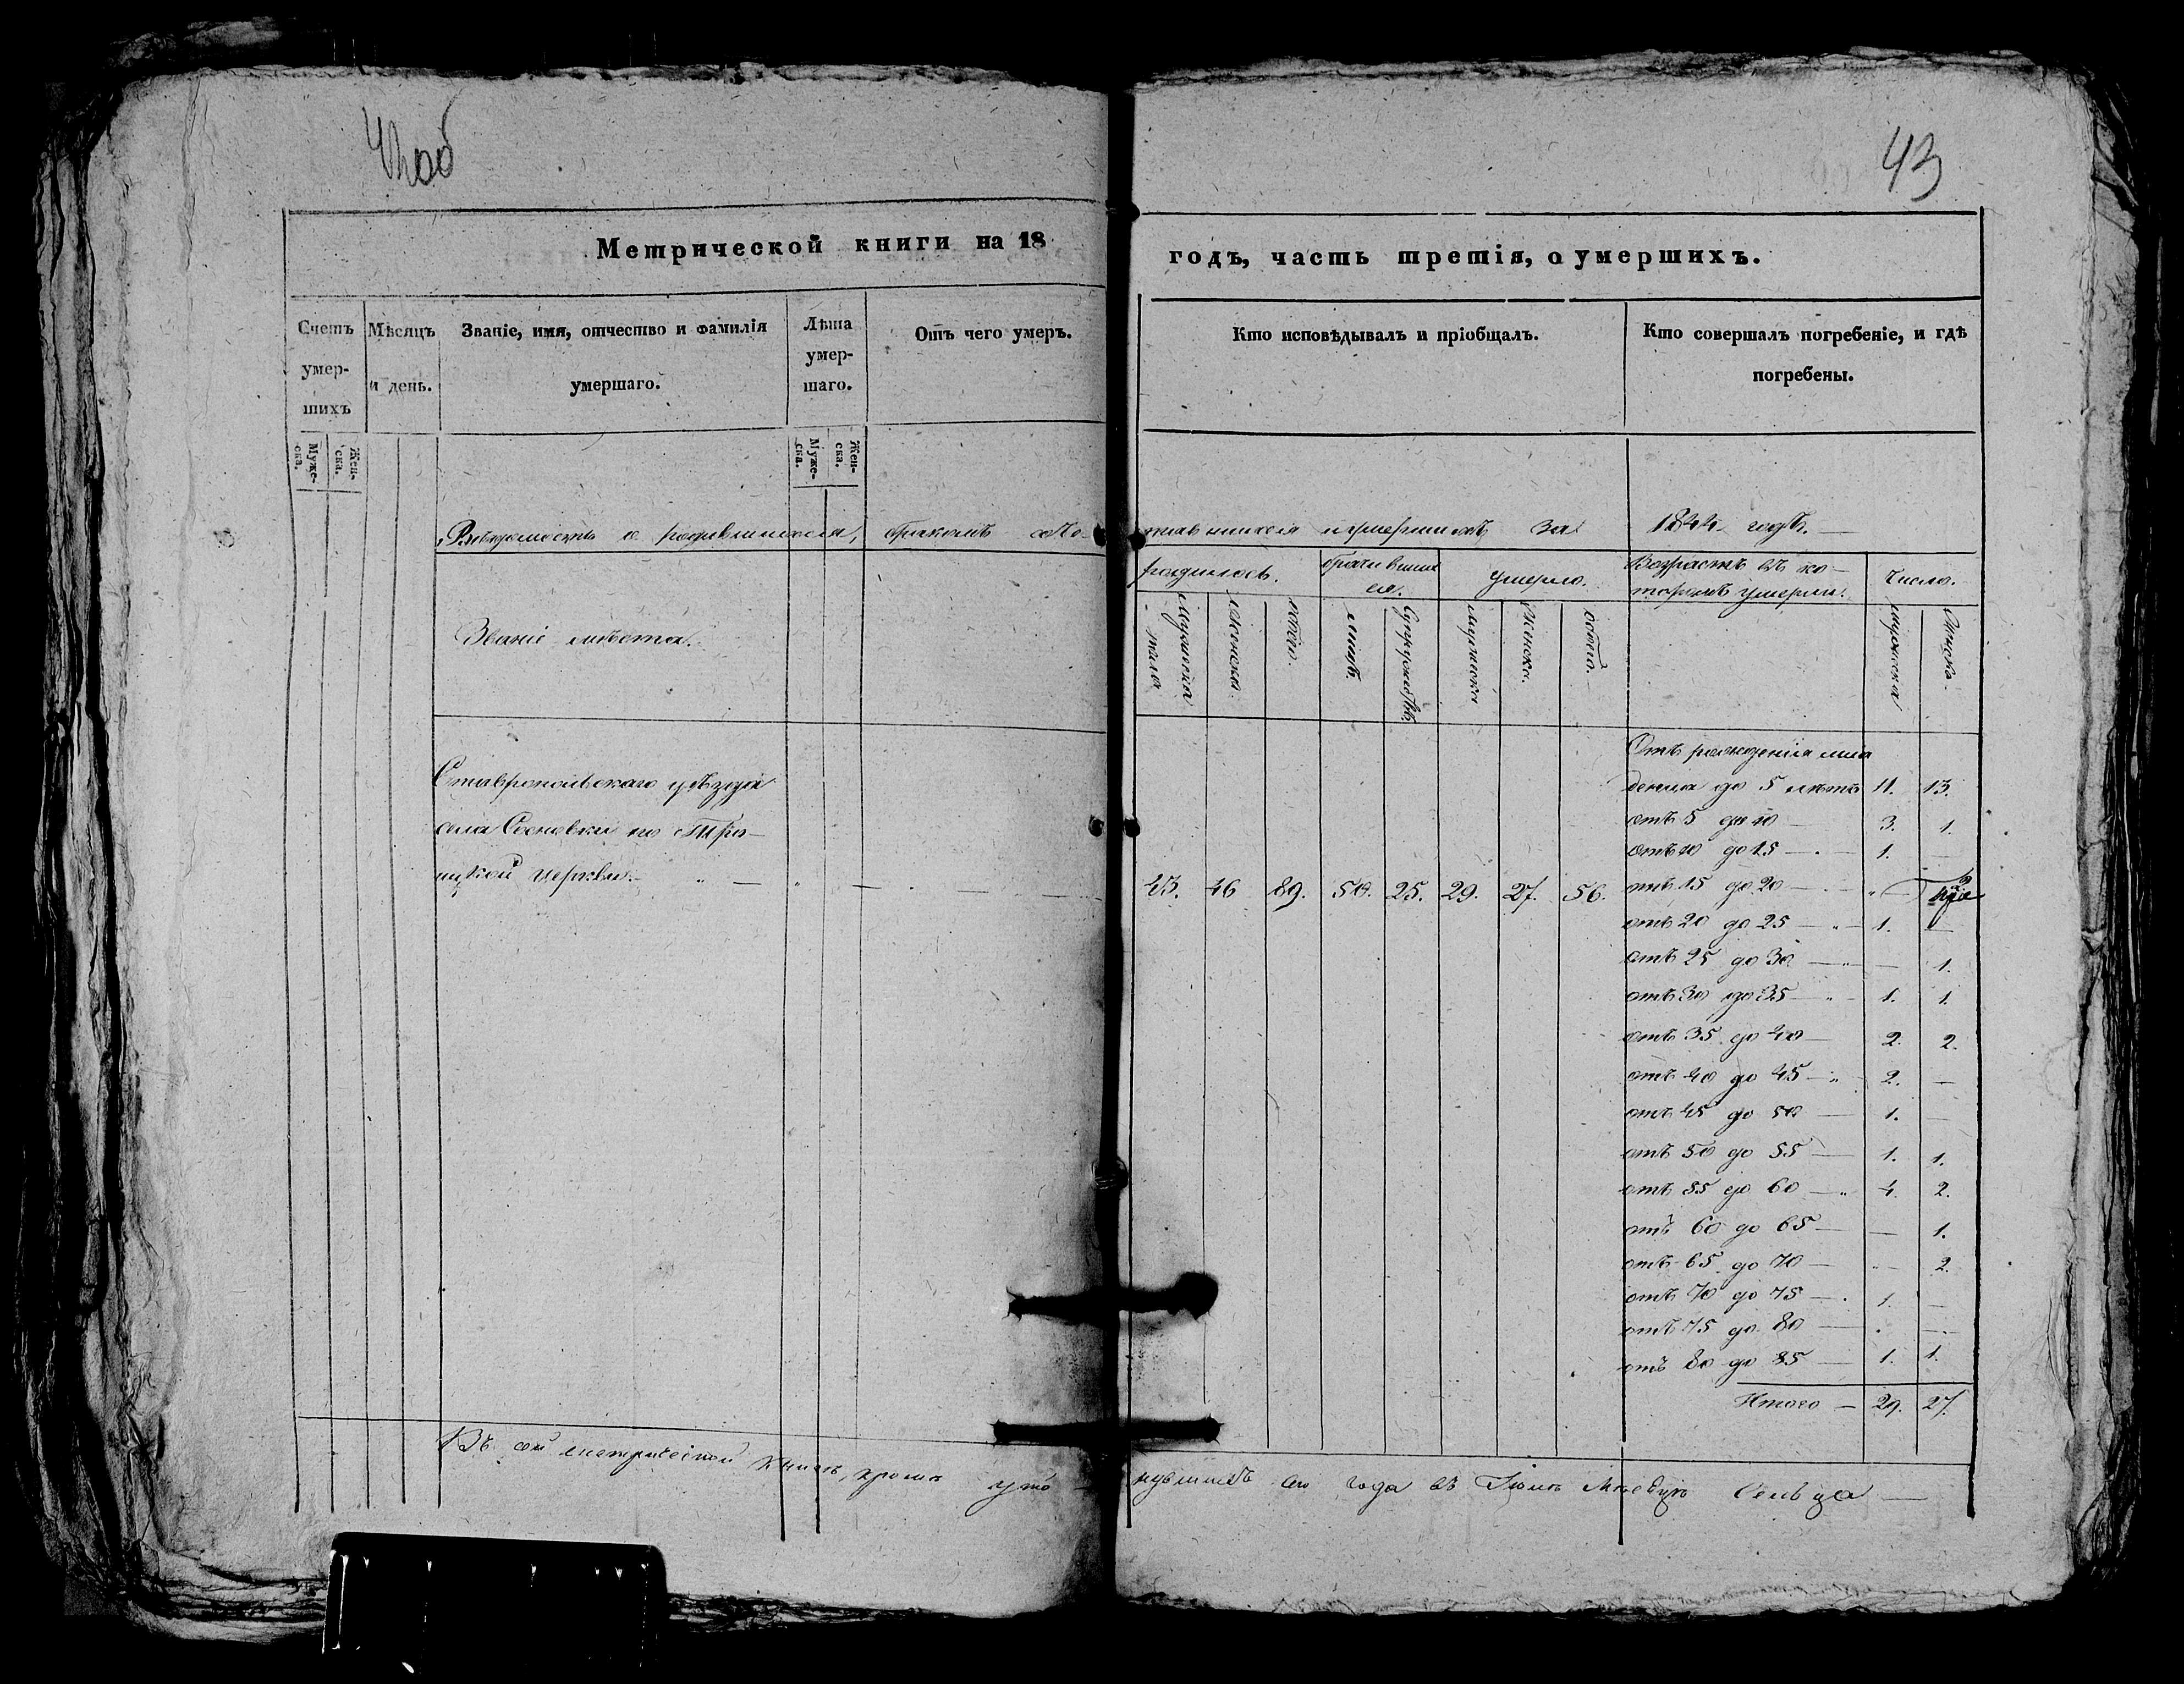 43
Метрической книги на 18 годъ, часть третія, о умершихъ.
Счетъ умер-шихъ
Мѣсяцъ и день.
Званіе, имя, отчество и фамилія умершаго.
Лѣта умер-шаго.
Отъ чего умеръ.
Кто исповѣдывалъ и пріобщалъ.
Кто совершалъ погребеніе, и гдѣ погребены.
Муже-ска.
Жен-ска.
Муже-ска.
Жен-ска.
Вѣдомость о родившихся, бракомъ соче-тавшихся и умершихъ за 1844 годъ. —
Званіе мѣста.
родилось.
брачивших ся.
умерло.
Возрастъ въ ко-
торомъ умерли.
Число.
Мужеска пола
Женска.
обоего.
лицъ.
Супружествъ.
мужеска
Женска.
обоего.
мужеска
Женска.
Ставропольскаго уѣзда
села Сосновки по Трои-
цкой церкви. 43. 46 89. 50. 25. 29. 27. 56.
Отъ рожденія мла
денца до 5 лѣтъ 11. 13.
отъ 5 до 10 — 3. 1.
отъ 10 до 15 — 1. —
отъ 15 до 20 —
отъ 20 до 25 — 1. —
отъ 25 до 30 — — 1.
отъ 30 до 35 — 1. 1.
отъ 35 до 40 — 2. 2.
отъ 40 до 45 — 2. —
отъ 45 до 50 — 1. —
отъ 50 до 55 — 1. 1.
отъ 55 до 60 — 4. 2.
отъ 60 до 65 — — 1.
отъ 65 до 70 — — 2.
отъ 70 до 75 — 1. —
отъ 75 до 80 — —
отъ 80 до 85 — 1. 1.
Итого — 29. 27.
Въ сей метрической книгѣ, кромѣ уто-нувшихъ сего года въ Іюнѣ Мѣсяцѣ